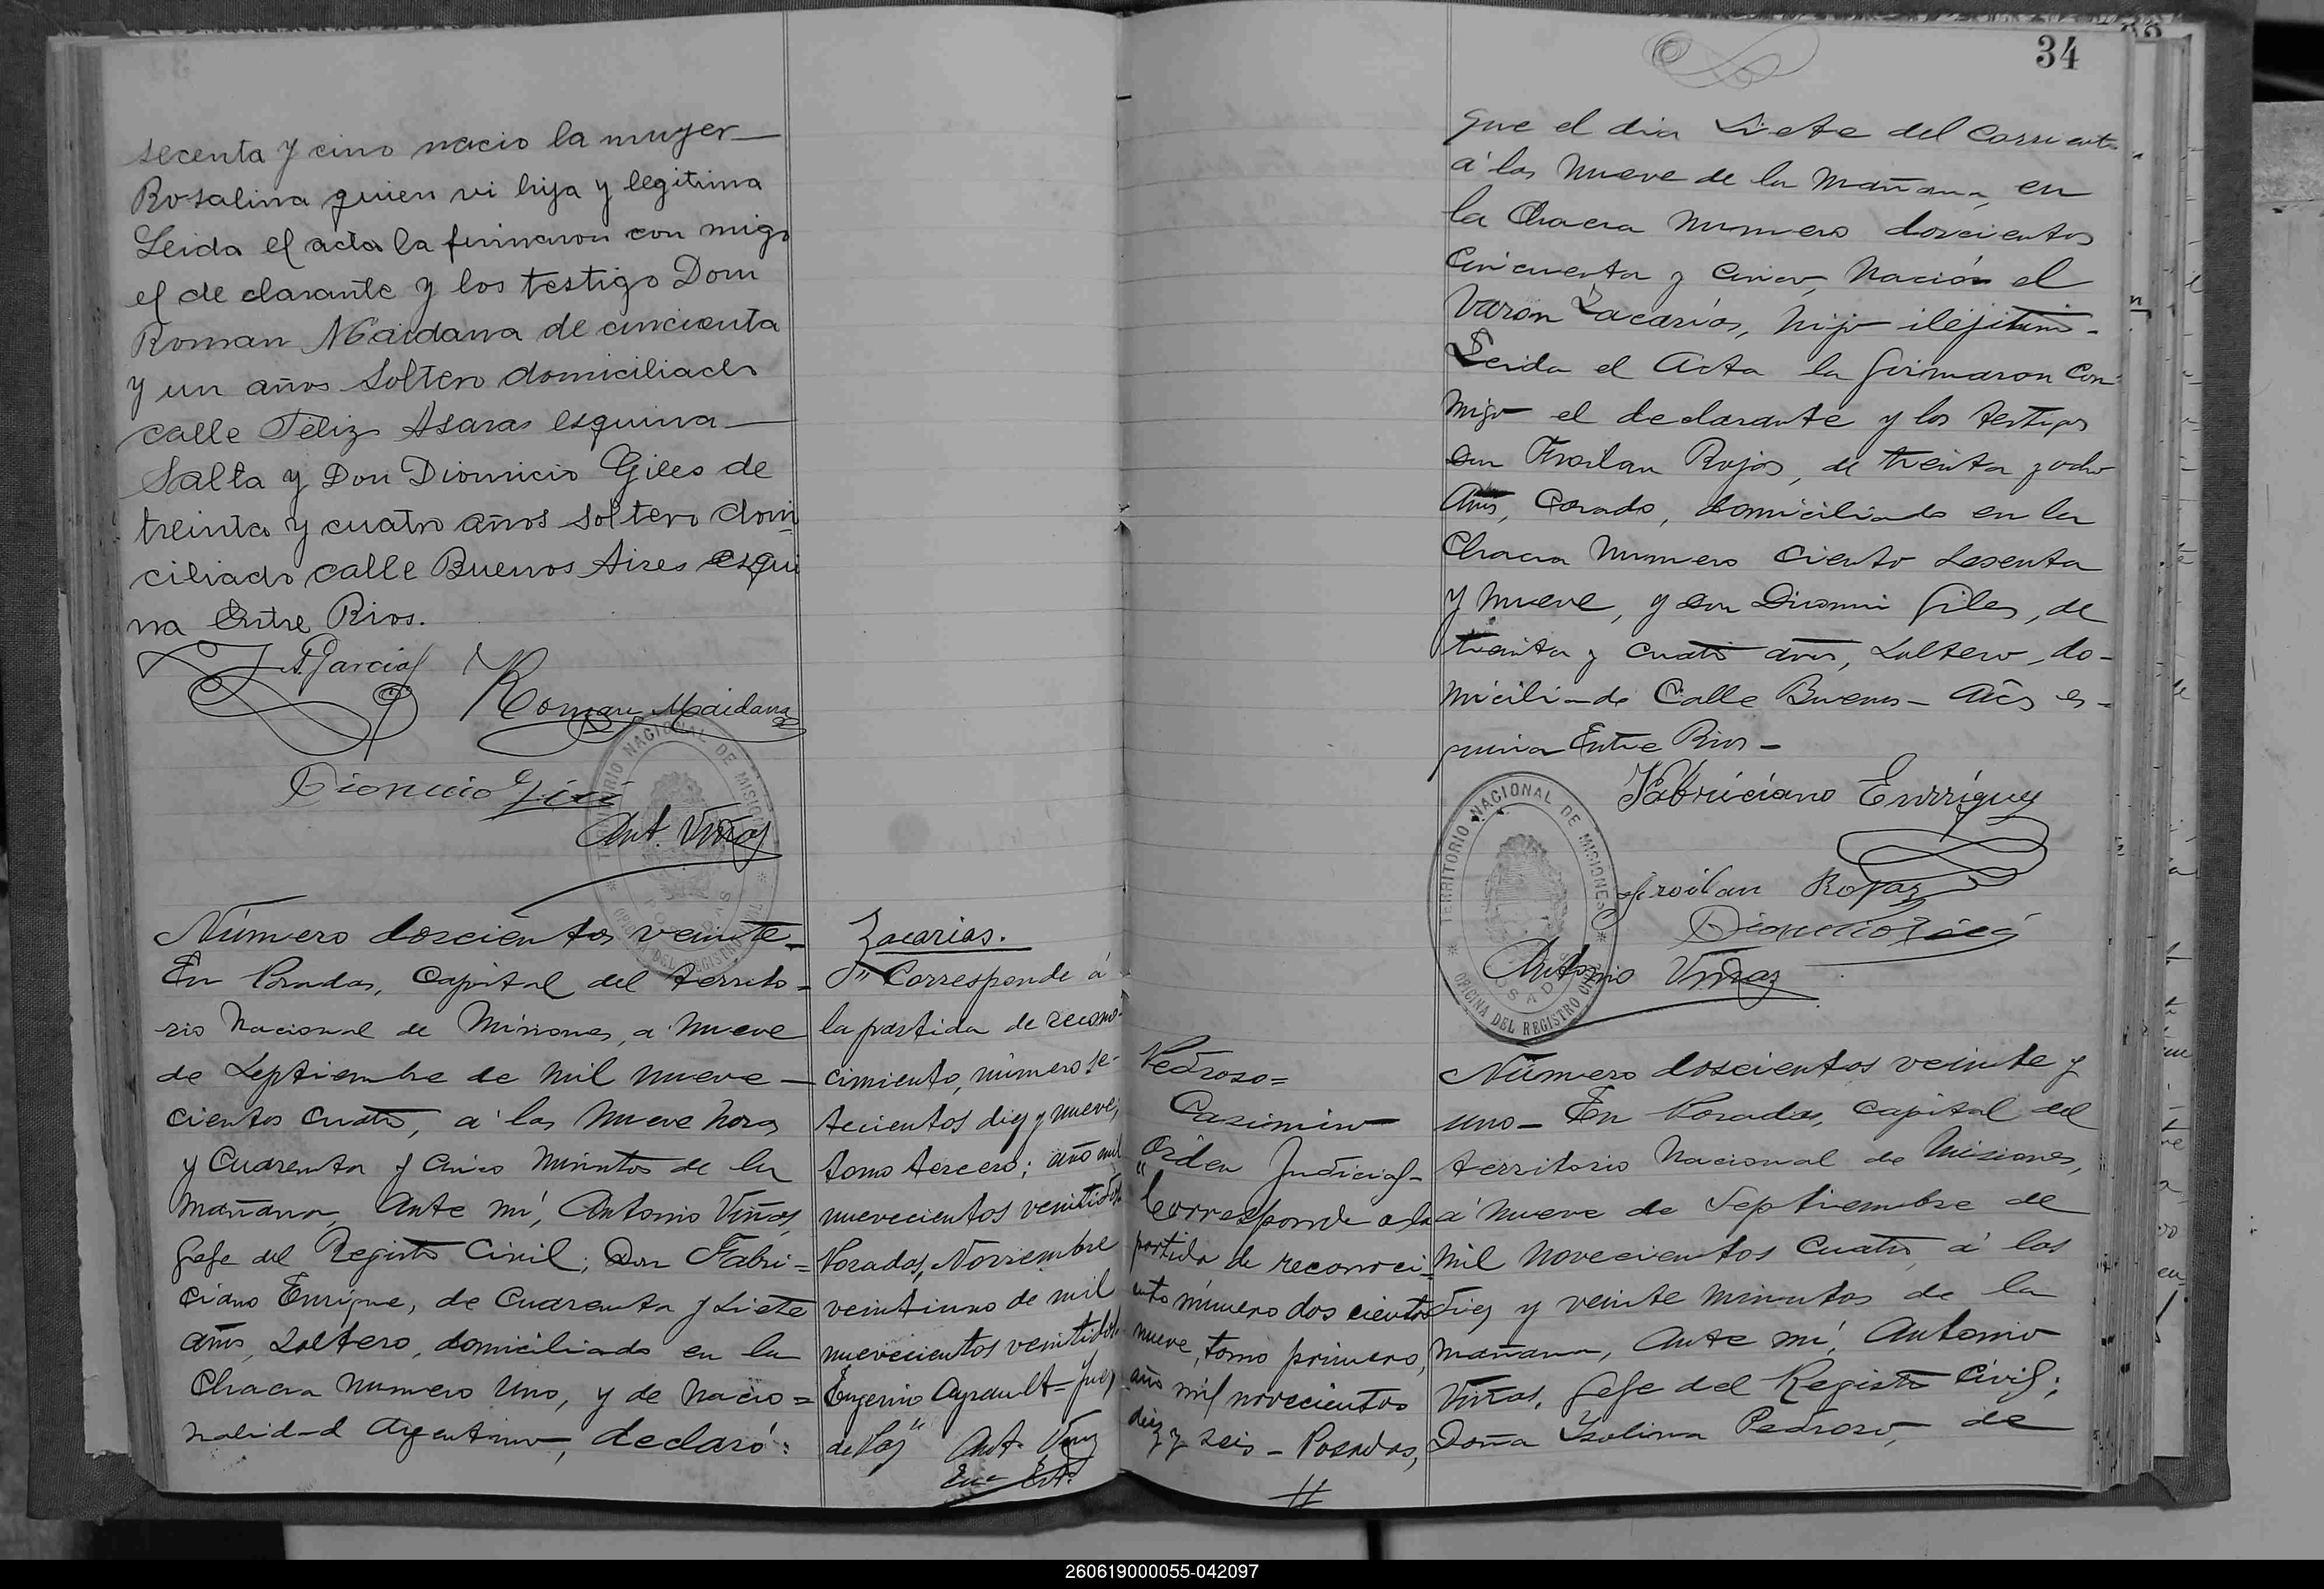 secenta y cino nacio la muyer
Rosalina quien vi hija y legitima
Leida el acta la firmaron con migo
el de clarante y los testigo Dom
Roman Maidana de cincienta
y un años soltero domiciliado
calle Feliz Asaras esquina
Salta y Don Dionicio Giles de
treinta y cuatro años soltero domi
ciliado calle Buenos Aires esqui
na Entre Rios.
A. Garcia
Roman Maidana
Dionicio
Ant. Viñas
TERRITORIO NACIONAL DE MISIONES
POSADAS
OFICINA DEL REGISTRO CIVIL
Número doscientos veinte-
En Posadas, Capital del territo-
rio Nacional de Misiones, a nueve
de Septiembre de mil nueve-
cientos cuatro, a las nueve horas
y cuarenta y cinco minutos de la
mañana, Ante mí, Antonio Viñas,
Gefe del Registro Civil; Don Fabri=
ciano Enrique, de cuarenta y siete
años, Soltero, domiciliado en la
Chacra numero Uno, y de nacio=
nalidad Argentino, declaró:
Zacarias.
"Corresponde á
la partida de recono-
cimiento, número se-
tecientos diez y nueve,
tomo tercero; año mil
nuevecientos veintidos.
Posadas, Noviembre
veintiuno de mil
nuevecientos veintidos.
Eugenio Ayrault - Juez
de Paz" Ant. Viñas
34
que el dia Siete del corriente
á las nueve de la mañana, en
la Chacra numero doscientos
cincuenta y cinco, Nación el
Varon Zacarías, hijo ilejitimo.
Leida el Acta la firmaron con
migo el declarante y los testigos
don Froilan Rojas, de treinta y ocho
años, Casado, domiciliado en la
Chacra numero ciento sesenta
y nueve, y don Dionini Giles, de
treinta y cuatro años, Soltero, do-
miciliado Calle Buenos-Aires es-
quina Entre Rios-
Fabriciano Enrriquez
Froilan Rojas
Dionicio
Antonio Viñas
TERRITORIO NACIONAL DE MISIONES
POSADAS
OFICINA DEL REGISTRO CIVIL
Pedroso=
Casimiro
Orden Judicial-
"Corresponde a la
partida de reconoci-
ento número dos cientos
nueve, tomo primero,
año mil novecientos
diez y seis - Posadas,
Número doscientos veinte y
uno- En Posadas, Capital del
territorio Nacional de Misiones,
á nueve de Septiembre de
mil novecientos cuatro, á las
diez y veinte minutos de la
mañana, Ante mí, Antonio
Viñas, Gefe del Registro Civil;
Doña Isolina Pedroso, de
260619000055-042097